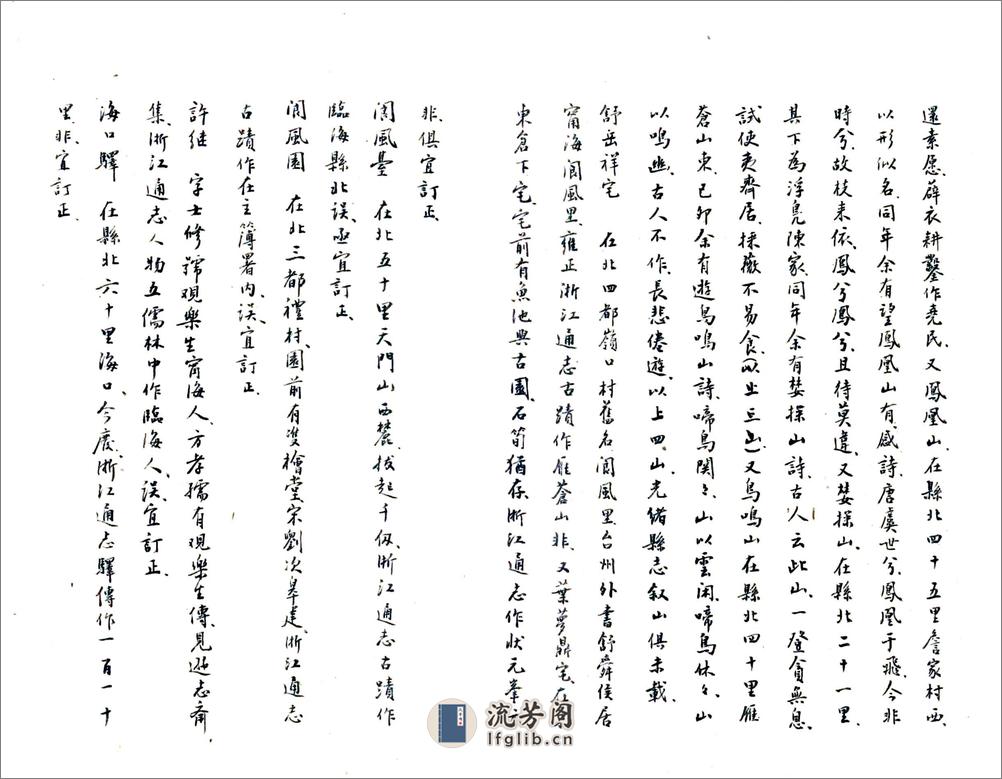 還素愿薜衣耕鑿作堯民、又鳳凰山、在縣北四十五里詹家村西、
以形似名、同年余有望鳳凰山有感詩、唐虞世兮、鳳凰于飛、今非
時兮、故枝来依、鳳兮鳳兮、且待莫違、又婪探山、在縣北二十一里、
其下為浮凫陳家、同年余有婪探山詩、古人云此山、一登貪無息、
試使夷齊居、採薇不易食、(以上三山)又鳥鳴山在縣北四十里雁
蒼山東、已卯余有遊鳥鳴山詩、啼鳥関々、山以雲閑、啼鳥休々、山
以鳴幽、古人不作、長悲倦遊、以上四山、光绪縣志叙山俱未載、
舒岳祥宅 在北四都嶺口村舊名阆風里、台州外書舒舜侯居
甯海阆風里、雍正浙江通志古蹟作雁蒼山非、又葉夢鼎宅、在
東倉下宅、宅前有魚池與古園、石筍猶存、浙江通志作狀元峯
非、俱宜訂正、
阆風臺 在北五十里天門山西麓、拔起千仭、浙江通志古蹟作
臨海縣北误、亟宜訂正、
阆風園 在北三都禮村、園前有雙檜堂宋劉次皋建、浙江通志
古蹟作在主簿署内、误、宜訂正、
許继 字士修、號观樂生甯海人、方孝孺有观樂生傳、見遜志齋
集、浙江通志人物五儒林中作臨海人、误、宜訂正、
海口驛 在縣北六十里海口、今廢、浙江通志驛傳作一百一十
里、非、宜訂正、
流芳阁
lfglib.cn